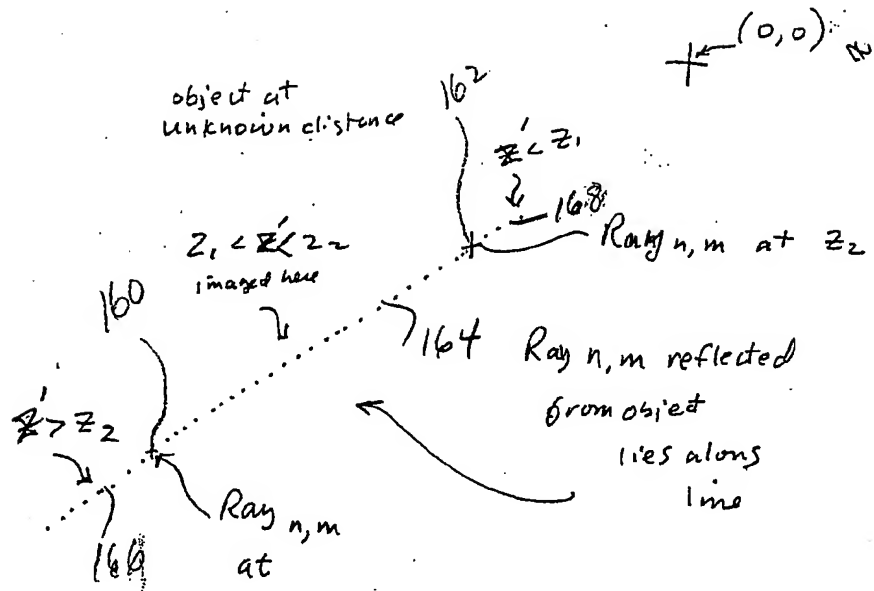 (0,0)
object at
unknown distance
162
z' < z₁
168
Ray n,m at z₂
z₁ < z' < z₂
imaged here
160
164
Ray n,m reflected
from object
lies along
line
z' > z₂
Ray n,m
at
166